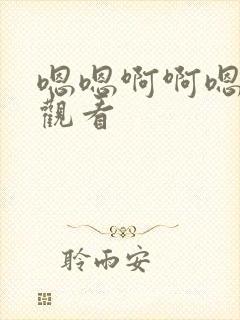 嗯嗯啊啊嗯
觀看
聆雨安